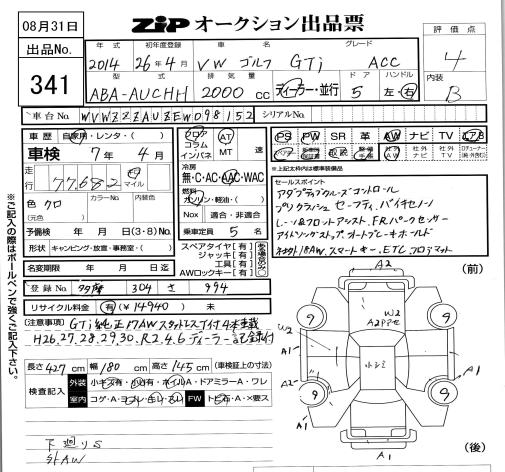 08月31日
ZiP オークション出品票
出品No.
341
年式 初年度登録 車名 グレード
2014 26年4月 VW ゴルフ GTi ACC
型式 排気量 ドア ハンドル
ABA-AUCHH 2000 cc ディーラー・並行 5 左・右
評価点
4
内装
B
車台No. WVWZZZAUZEW098152 シリアルNo.
車歴 自家用・レンタ・( )
車検 7年 4月
走行 77,682 キロ マイル
色 クロ
(元色)
カラーNo. 内装色
予備検 年 月 日 (3・8) No.
形状 キャンピング・放置・事務室・( )
名変期限 年 月 日迄
登録No. 304 さ 994
リサイクル料金 有(¥14940) 未
フロア コラム インパネ
AT MT 速
冷房
無・C・AC・AAC・WAC
燃料
ガソリン・軽油・( )
Nox 適合・非適合
乗車定員 5 名
スペアタイヤ【有】
ジャッキ【有】
工具【有】
AWロックキー【有】
PS PW SR 革 AW ナビ TV エアB
社外AW 社外ナビ 社外TV
※上記枠内は標準装備品
セールスポイント
アダプティブクルーズコントロール
プリクラッシュ セーフティ、バイキセノン
レーン&フロントアシスト、FRパークセンサー
アイドリングストップ、オートブレーキホールド
18AW スマートキー、ETC、フロアマット
【注意事項】GTi純正17AWスタッドレスタイヤ4本積載
H26.27.28.29.30.R2.4.6 ディーラー記録簿付
長さ427cm 幅180cm 高さ145cm (車検証の寸法)
検査記入
外装 小キズ有・小凹有・ホイルA・ドアミラーA・ワレ
室内 コゲ・A・ヨゴレ・キレ・スレ FW トビ石・A・×要ス
下廻りS
外AW
※ご記入の際はボールペンで強くご記入下さい。
(前)
A2
W2
A2
9
9
U2
A1
A1
A2
小シミ
9
9
A1
A1
(後)